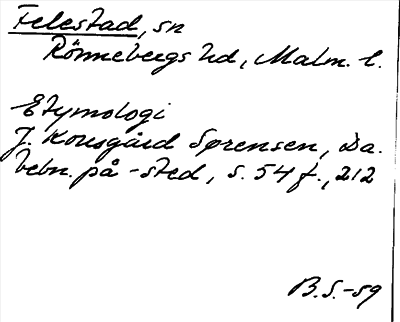 Felestad, sn
Rönnebergs hd, Malm. l.
Etymologi
J. Kousgård Sørensen, Da.
bebn. på -sted, s. 54 f., 212
B.S.-59